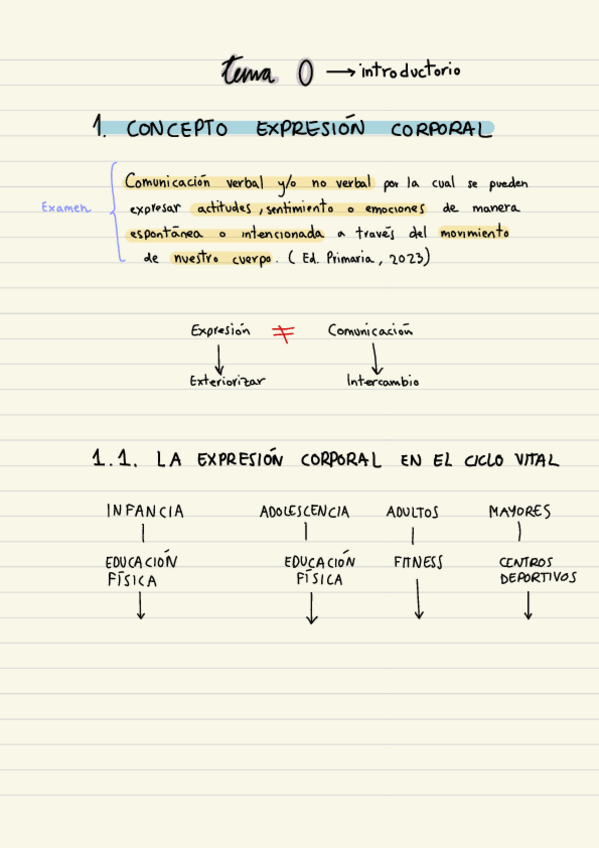 tema 0 → introductorio
1. CONCEPTO EXPRESIÓN CORPORAL
Comunicación verbal y/o no verbal por la cual se pueden
Examen
expresar actitudes, sentimiento o emociones de manera
espontánea o intencionada a través del movimiento
de nuestro cuerpo. (Ed. Primaria, 2023)
Expresión ≠ Comunicación
Exteriorizar Intercambio
1.1. LA EXPRESIÓN CORPORAL EN EL CICLO VITAL
INFANCIA ADOLESCENCIA ADULTOS MAYORES
EDUCACIÓN EDUCACIÓN FITNESS CENTROS
FÍSICA FÍSICA DEPORTIVOS